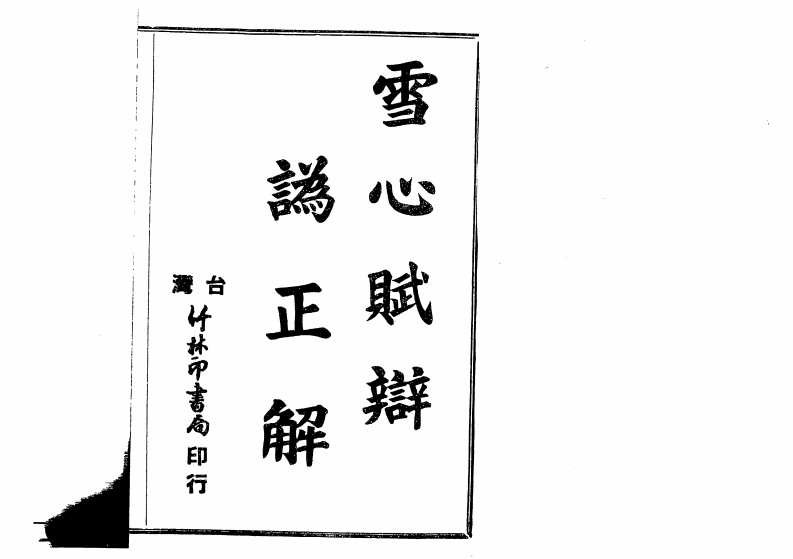 雪心賦辯
譌正解
台灣
竹林印書局印行